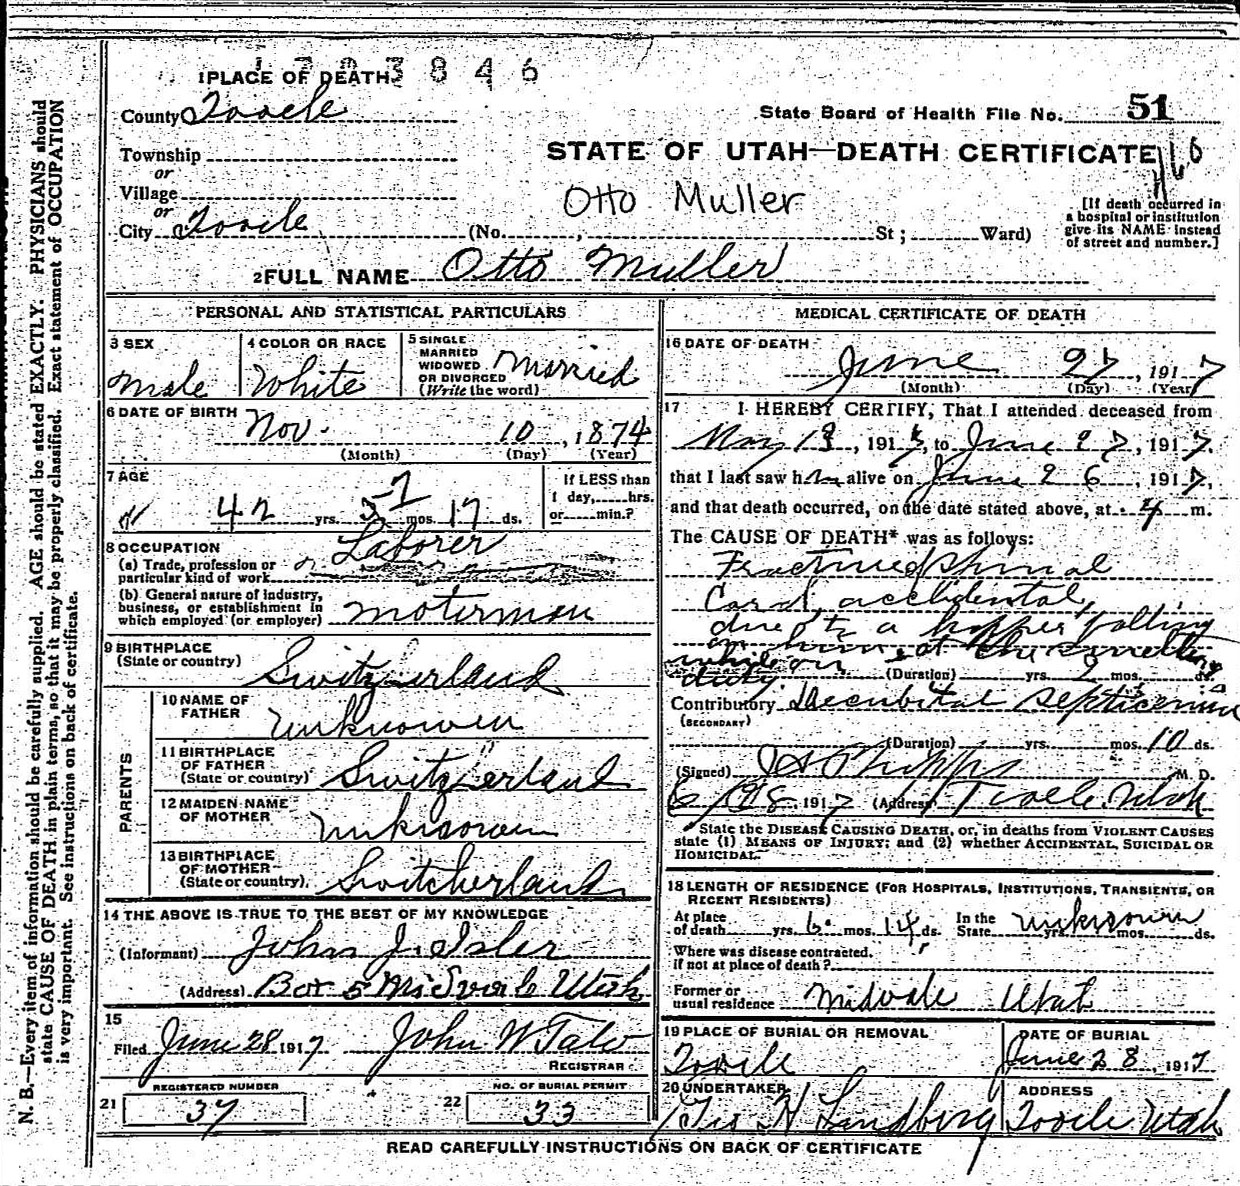 3846
1 PLACE OF DEATH
County Tooele
State Board of Health File No. 51
Township
or
STATE OF UTAH—DEATH CERTIFICATE
Village
or
Otto Muller
[If death occurred in
a hospital or institution
give its NAME instead
of street and number.]
City Tooele (No. , St; Ward)
2 FULL NAME Otto Muller
PERSONAL AND STATISTICAL PARTICULARS
3 SEX
Male
4 COLOR OR RACE
White
5 SINGLE
MARRIED
WIDOWED
OR DIVORCED
(Write the word)
Married
6 DATE OF BIRTH
Nov. 10, 1874
(Month) (Day) (Year)
7 AGE
42 yrs. 7 mos. 17 ds.
If LESS than
1 day, hrs.
or min.?
8 OCCUPATION
(a) Trade, profession or
particular kind of work
Laborer
(b) General nature of industry,
business, or establishment in
which employed (or employer)
Motorman
9 BIRTHPLACE
(State or country)
Switzerland
PARENTS
10 NAME OF
FATHER
Unknowen
11 BIRTHPLACE
OF FATHER
(State or country)
Switzerland
12 MAIDEN NAME
OF MOTHER
Unknowen
13 BIRTHPLACE
OF MOTHER
(State or country)
Switcherland
14 THE ABOVE IS TRUE TO THE BEST OF MY KNOWLEDGE
(Informant) John J. Isler
(Address) Box 5 Utah
15
Filed June 28 1917 John W Tate
REGISTRAR
REGISTERED NUMBER
21 37
NO. OF BURIAL PERMIT
22 33
MEDICAL CERTIFICATE OF DEATH
16 DATE OF DEATH
June 27, 1917
(Month) (Day) (Year)
17 I HEREBY CERTIFY, That I attended deceased from
May 19, 1917, to June 27, 1917,
that I last saw him alive on June 26, 1917,
and that death occurred, on the date stated above, at 4 m.
The CAUSE OF DEATH* was as follows:
Fractured Spinal
Cord, accidental,
due to a hopper falling
on him at the smelting
while on
duty (Duration) yrs. mos. ds.
Contributory Decubital Septicemia
(SECONDARY)
(Duration) yrs. mos. 10 ds.
(Signed) J A Phipps M. D.
6/28 1917 (Address) Tooele Utah
*State the DISEASE CAUSING DEATH, or, in deaths from VIOLENT CAUSES
state (1) MEANS OF INJURY; and (2) whether ACCIDENTAL, SUICIDAL OR
HOMICIDAL.
18 LENGTH OF RESIDENCE (FOR HOSPITALS, INSTITUTIONS, TRANSIENTS, OR
RECENT RESIDENTS)
At place
of death yrs. 6 mos. 14 ds.
In the
State yrs. mos. ds.
Unknowen
Where was disease contracted.
if not at place of death?
Former or
usual residence Midvale Utah
19 PLACE OF BURIAL OR REMOVAL
Tooele
DATE OF BURIAL
June 28, 1917
20 UNDERTAKER
Geo H Lundberg
ADDRESS
Tooele Utah
READ CAREFULLY INSTRUCTIONS ON BACK OF CERTIFICATE
N. B.—Every item of information should be carefully supplied. AGE should be stated EXACTLY. PHYSICIANS should
state CAUSE OF DEATH in plain terms, so that it may be properly classified. Exact statement of OCCUPATION
is very important. See instructions on back of certificate.